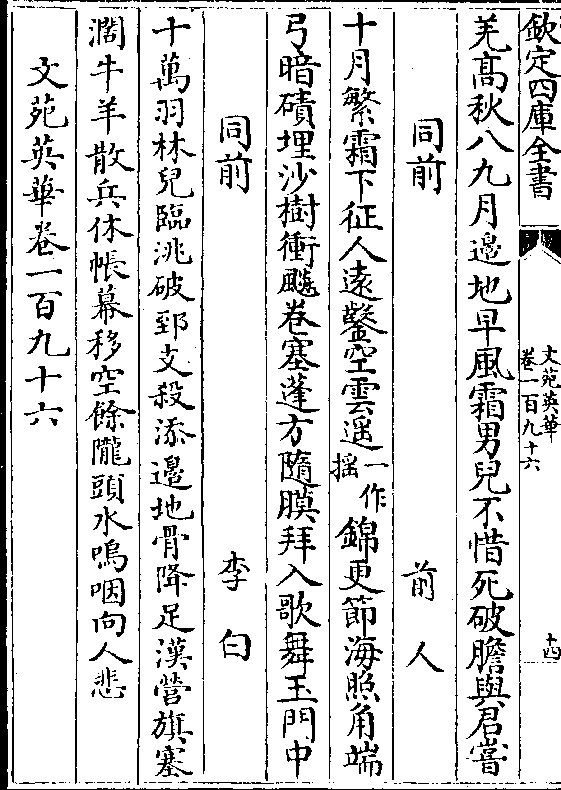 欽定四庫全書
文苑英華
卷一百九十六
十四
羌高秋八九月邊地早風霜男兒不惜死破膽與君嘗
同前 前人
十月繁霜下征人遠鑿空雲遥一作揺錦更節海照角端
弓暗磧埋沙樹衝飇卷塞蓬方隨膜拜入歌舞玉門中
同前 李白
十萬羽林兒臨洮破郅支殺添邊地骨降足漢營旗塞
濶牛羊散兵休帳幕移空餘隴頭水嗚咽向人悲
文苑英華卷一百九十六